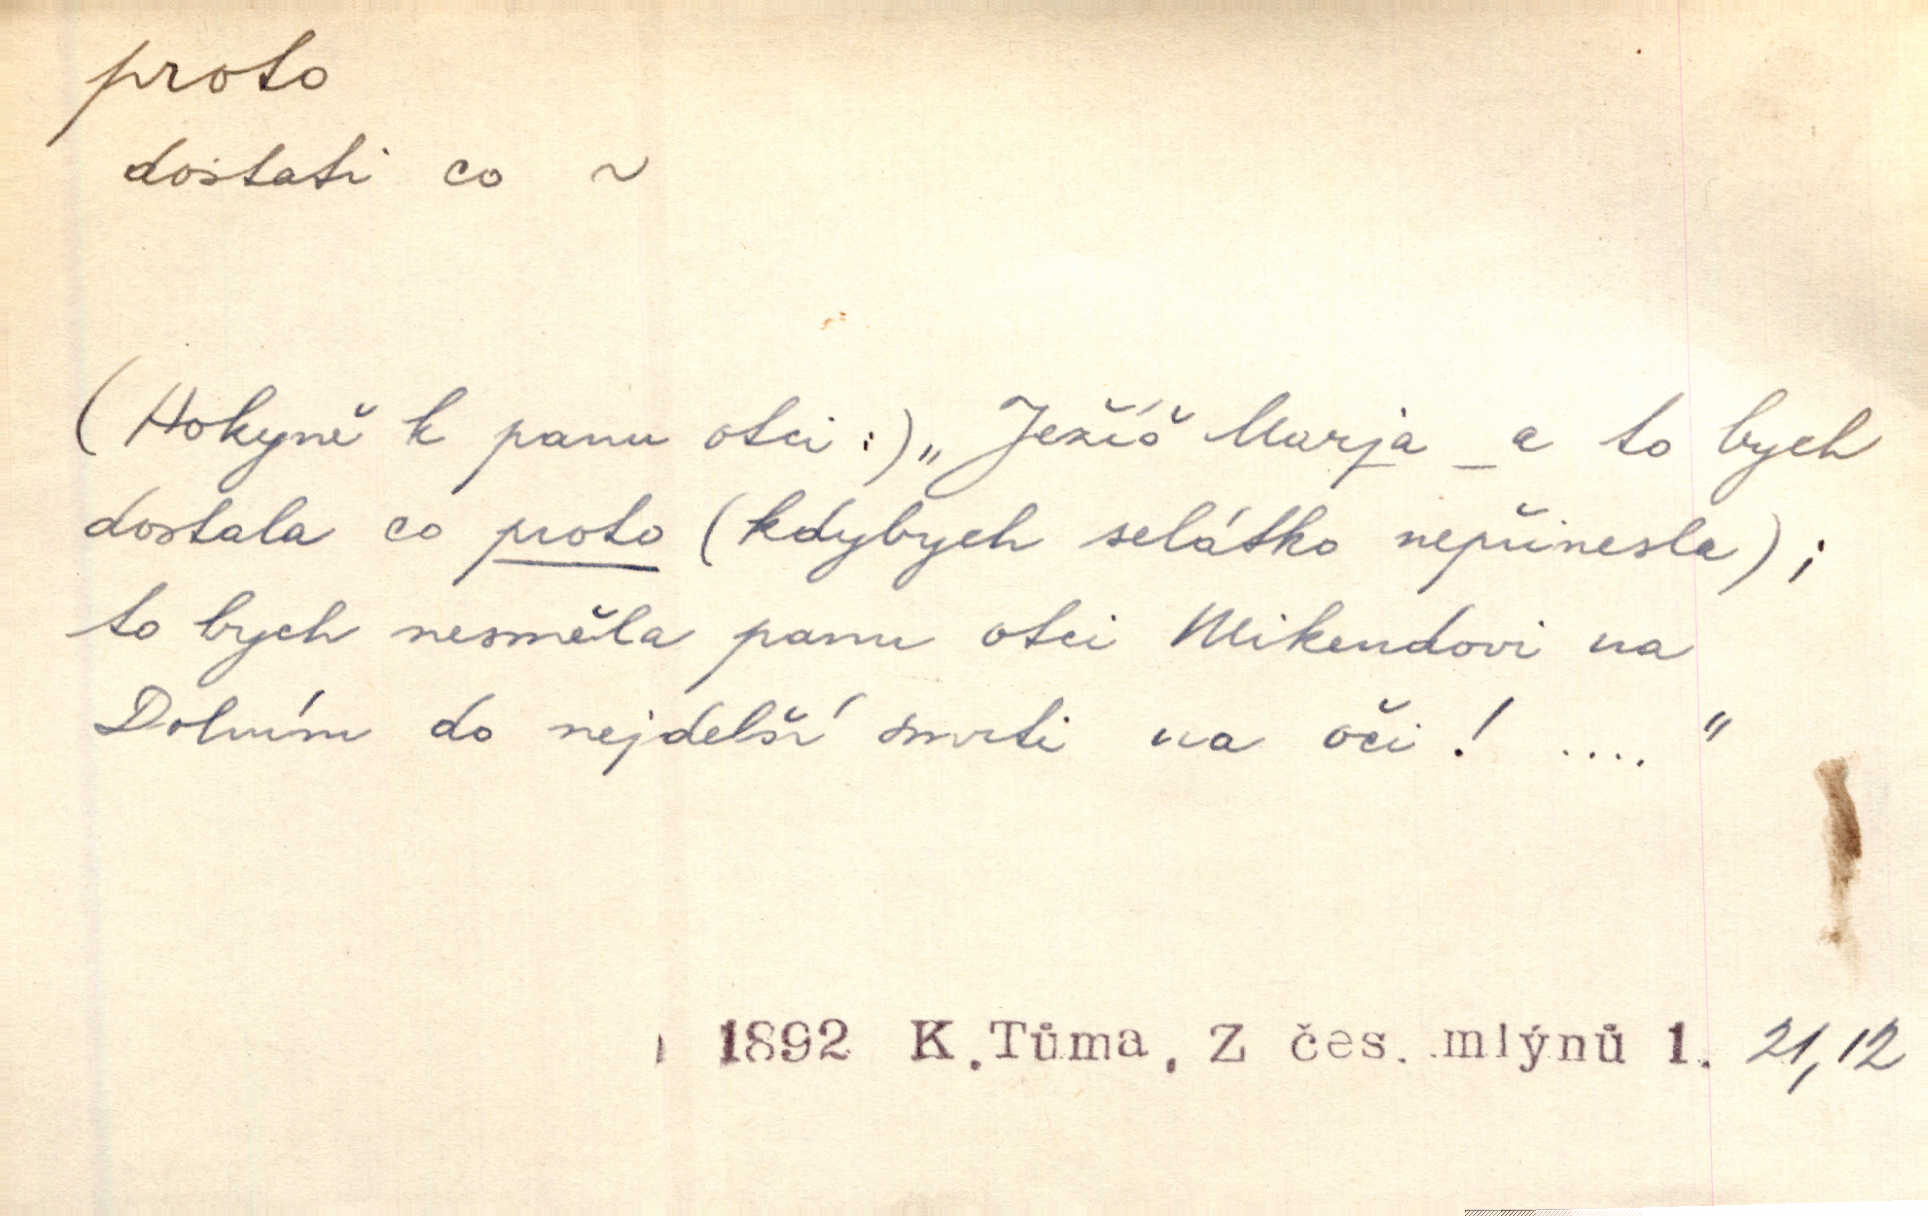 proto
dostati co ~
(Hokyně k panu otci:) „Ježíš Marja – a to bych
dostala co proto (kdybych selátko nepřinesla);
to bych nesměla panu otci Mikendovi na
Dolním do nejdelší smrti na oči! .... "
1892 K.Tůma, Z čes. mlýnů 1. 21,12